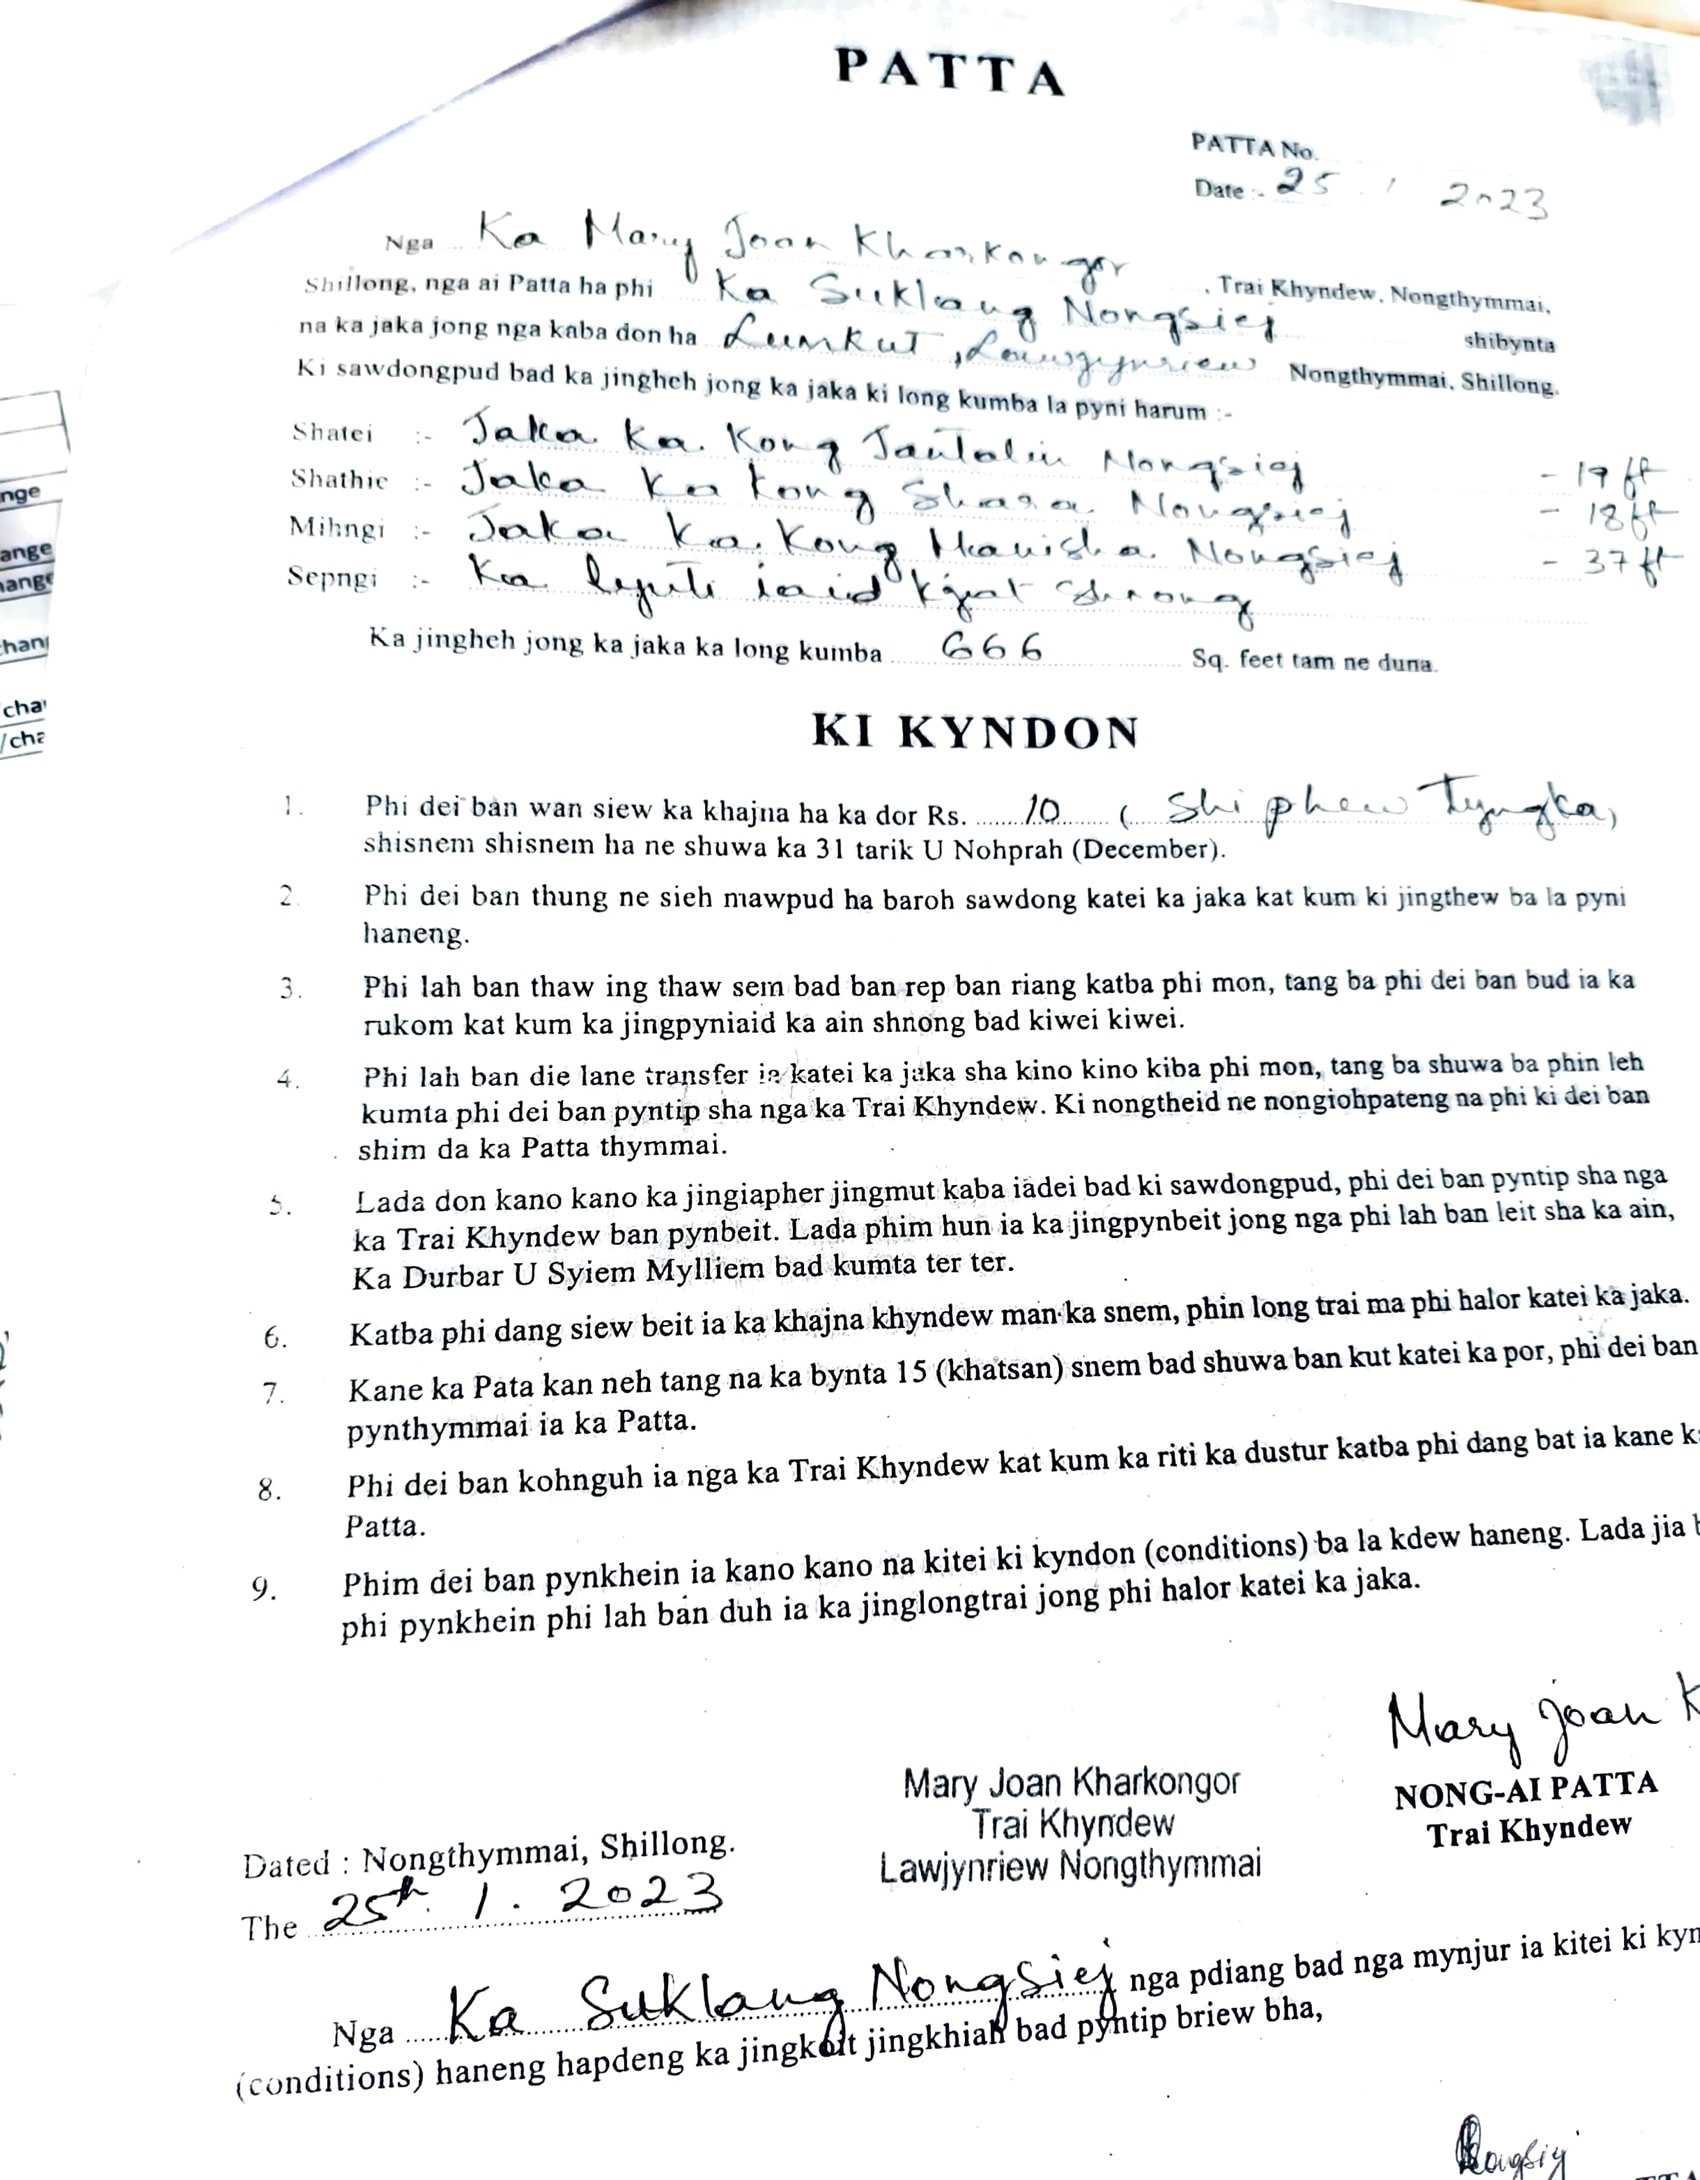 PATTA
PATTA No.
Date :- 25 . 1 2023
Nga Ka Mary Joan Kharkongor , Trai Khyndew, Nongthymmai,
Shillong, nga ai Patta ha phi Ka Suklang Nongsiej shibynta
na ka jaka jong nga kaba don ha Lumkut, Nongthymmai, Shillong.
Ki sawdongpud bad ka jingheh jong ka jaka ki long kumba la pyni harum :-
Shatei :- Jaka Ka Kong Nongsiej - 19 ft
Shathie :- Jaka Ka Kong Nongsiej - 18 ft
Mihngi :- Jaka Ka Kong Nongsiej - 37 ft
Sepngi :- Ka lynti iaid kjat shnong
Ka jingheh jong ka jaka ka long kumba 666 Sq. feet tam ne duna.
KI KYNDON
1. Phi dei ban wan siew ka khajna ha ka dor Rs. 10 (Shi phew Tyngka)
shisnem shisnem ha ne shuwa ka 31 tarik U Nohprah (December).
2. Phi dei ban thung ne sieh mawpud ha baroh sawdong katei ka jaka kat kum ki jingthew ba la pyni
haneng.
3. Phi lah ban thaw ing thaw sem bad ban rep ban riang katba phi mon, tang ba phi dei ban bud ia ka
rukom kat kum ka jingpyniaid ka ain shnong bad kiwei kiwei.
4. Phi lah ban die lane transfer ia katei ka jaka sha kino kino kiba phi mon, tang ba shuwa ba phin leh
kumta phi dei ban pyntip sha nga ka Trai Khyndew. Ki nongtheid ne nongiohpateng na phi ki dei ban
shim da ka Patta thymmai.
5. Lada don kano kano ka jingiapher jingmut kaba iadei bad ki sawdongpud, phi dei ban pyntip sha nga
ka Trai Khyndew ban pynbeit. Lada phim hun ia ka jingpynbeit jong nga phi lah ban leit sha ka ain,
Ka Durbar U Syiem Mylliem bad kumta ter ter.
6. Katba phi dang siew beit ia ka khajna khyndew man ka snem, phin long trai ma phi halor katei ka jaka.
7. Kane ka Pata kan neh tang na ka bynta 15 (khatsan) snem bad shuwa ban kut katei ka por, phi dei ban
pynthymmai ia ka Patta.
8. Phi dei ban kohnguh ia nga ka Trai Khyndew kat kum ka riti ka dustur katba phi dang bat ia kane
Patta.
9. Phim dei ban pynkhein ia kano kano na kitei ki kyndon (conditions) ba la kdew haneng. Lada jia
phi pynkhein phi lah ban duh ia ka jinglongtrai jong phi halor katei ka jaka.
Mary Joan K
NONG-AI PATTA
Trai Khyndew
Mary Joan Kharkongor
Trai Khyndew
Lawjynriew Nongthymmai
Dated : Nongthymmai, Shillong.
The 25th. 1. 2023
Nga Ka Suklang Nongsiej nga pdiang bad nga mynjur ia kitei ki kyn
(conditions) haneng hapdeng ka jingkoit jingkhiah bad pyntip briew bha,